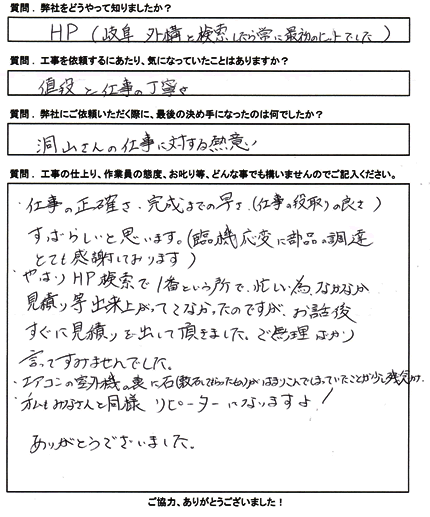 質問．弊社をどうやって知りましたか？
HP（岐阜 外構と検索したら常に最初のヒットでした）
質問．工事を依頼するにあたり、気になっていたことはありますか？
値段と仕事の丁寧さ
質問．弊社にご依頼いただく際に、最後の決め手になったのは何でしたか？
洞山さんの仕事に対する熱意い
質問．工事の仕上り、作業員の態度、お叱り等、どんな事でも構いませんのでご記入ください。
・仕事の正確さ・完成までの早さ（仕事の段取りの良さ）
すばらしいと思います。（臨機応変に部品の調達
とても感謝しております）
・やはりHP検索で1番という所で、忙しい為、なかなか
見積り等出来上がってこなかったのですが、お話後
すぐに見積りを出して頂きました。ご無理ばかり
言ってすみませんでした。
・エアコンの室外機の裏に石（敷石でもらったもの）がはまりこんでしまっていたことが少し残念
・私もみなさんと同様 リピーターになりますよ！
ありがとうございました。
ご協力、ありがとうございました！